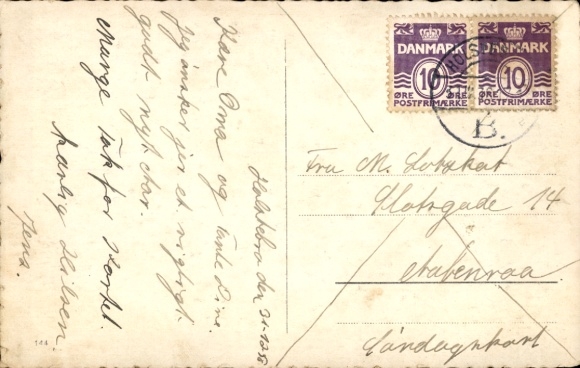 Holstebro den 31-12-38
Kære Oma og Tante Line.
Jeg ønsker jer et rigtigt
godt nyt Aar.
Mange Tak for Kortet.
Kærlig Hilsen
Jens.
144
DANMARK
10
ØRE
ØRE
POSTFRIMÆRKE
DANMARK
10
ØRE
ØRE
POSTFRIMÆRKE
B.
Fru M.
Slotsgade 14
Aabenraa